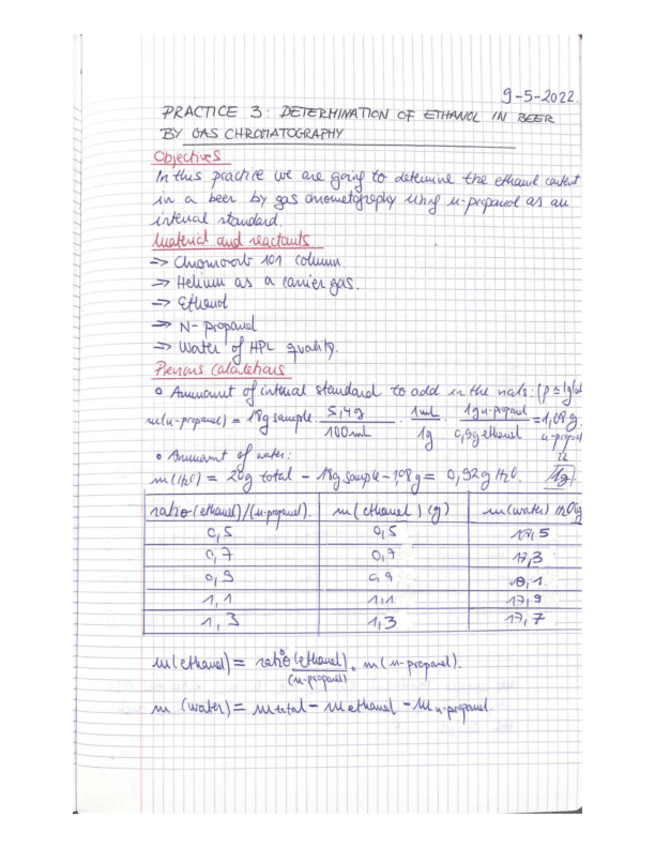 9-5-2022.
PRACTICE 3: DETERMINATION OF ETHANOL IN BEER
BY GAS CHROMATOGRAPHY
Objectives
In this practice we are going to determine the ethanol content
in a beer by gas chromatography using n-propanol as an
internal standard.
Material and reactants
=> Chromosorb 101 column
=> Helium as a carrier gas.
=> Ethanol
=> N-propanol
=> Water of HPL quality.
Previous calculations
• Ammount of internal standard to add in the
m(n-propanol) = 18g sample · 5,4g / 100mL · 1mL / 1g · 1g n-propanol / 0,9g ethanol = 1,08g
n-propanol
• Ammount of water:
m(H2O) = 20g total - 18g sample - 1,08g = 0,92g H2O. 1g
ratio (ethanol)/(n-propanol). m (ethanol) (g) m (water)
0,5 0,5
0,7 0,7
0,9 0,9
1,1 1,1
1,3 1,3
m(ethanol) = ratio (ethanol)/(n-propanol) · m(n-propanol).
m (water) = m total - m ethanol - m n-propanol.